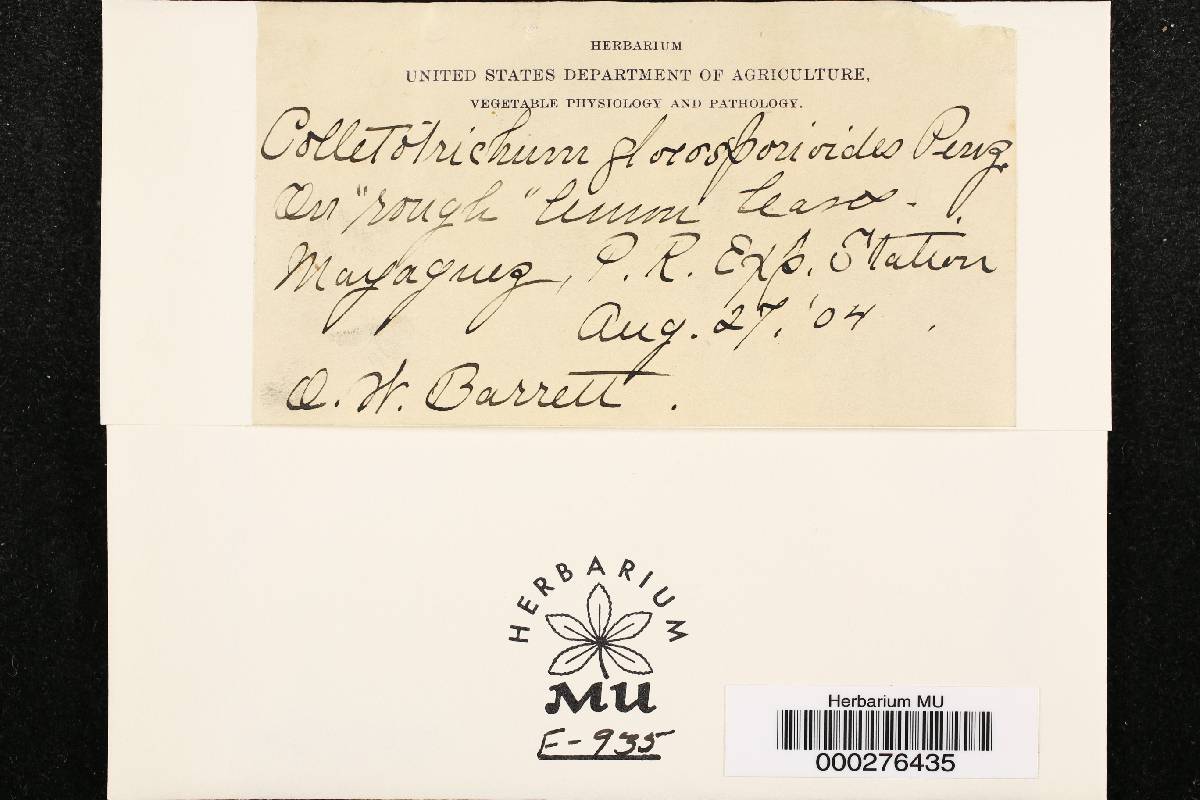 HERBARIUM
UNITED STATES DEPARTMENT OF AGRICULTURE,
VEGETABLE PHYSIOLOGY AND PATHOLOGY.
Colletotrichum gloeosporioides Penz.
On "rough" lemon leaves.
Mayaguez, P. R. Exp. Station
Aug. 27, '04
O. W. Barrett.
HERBARIUM
MU
F-935
Herbarium MU
000276435